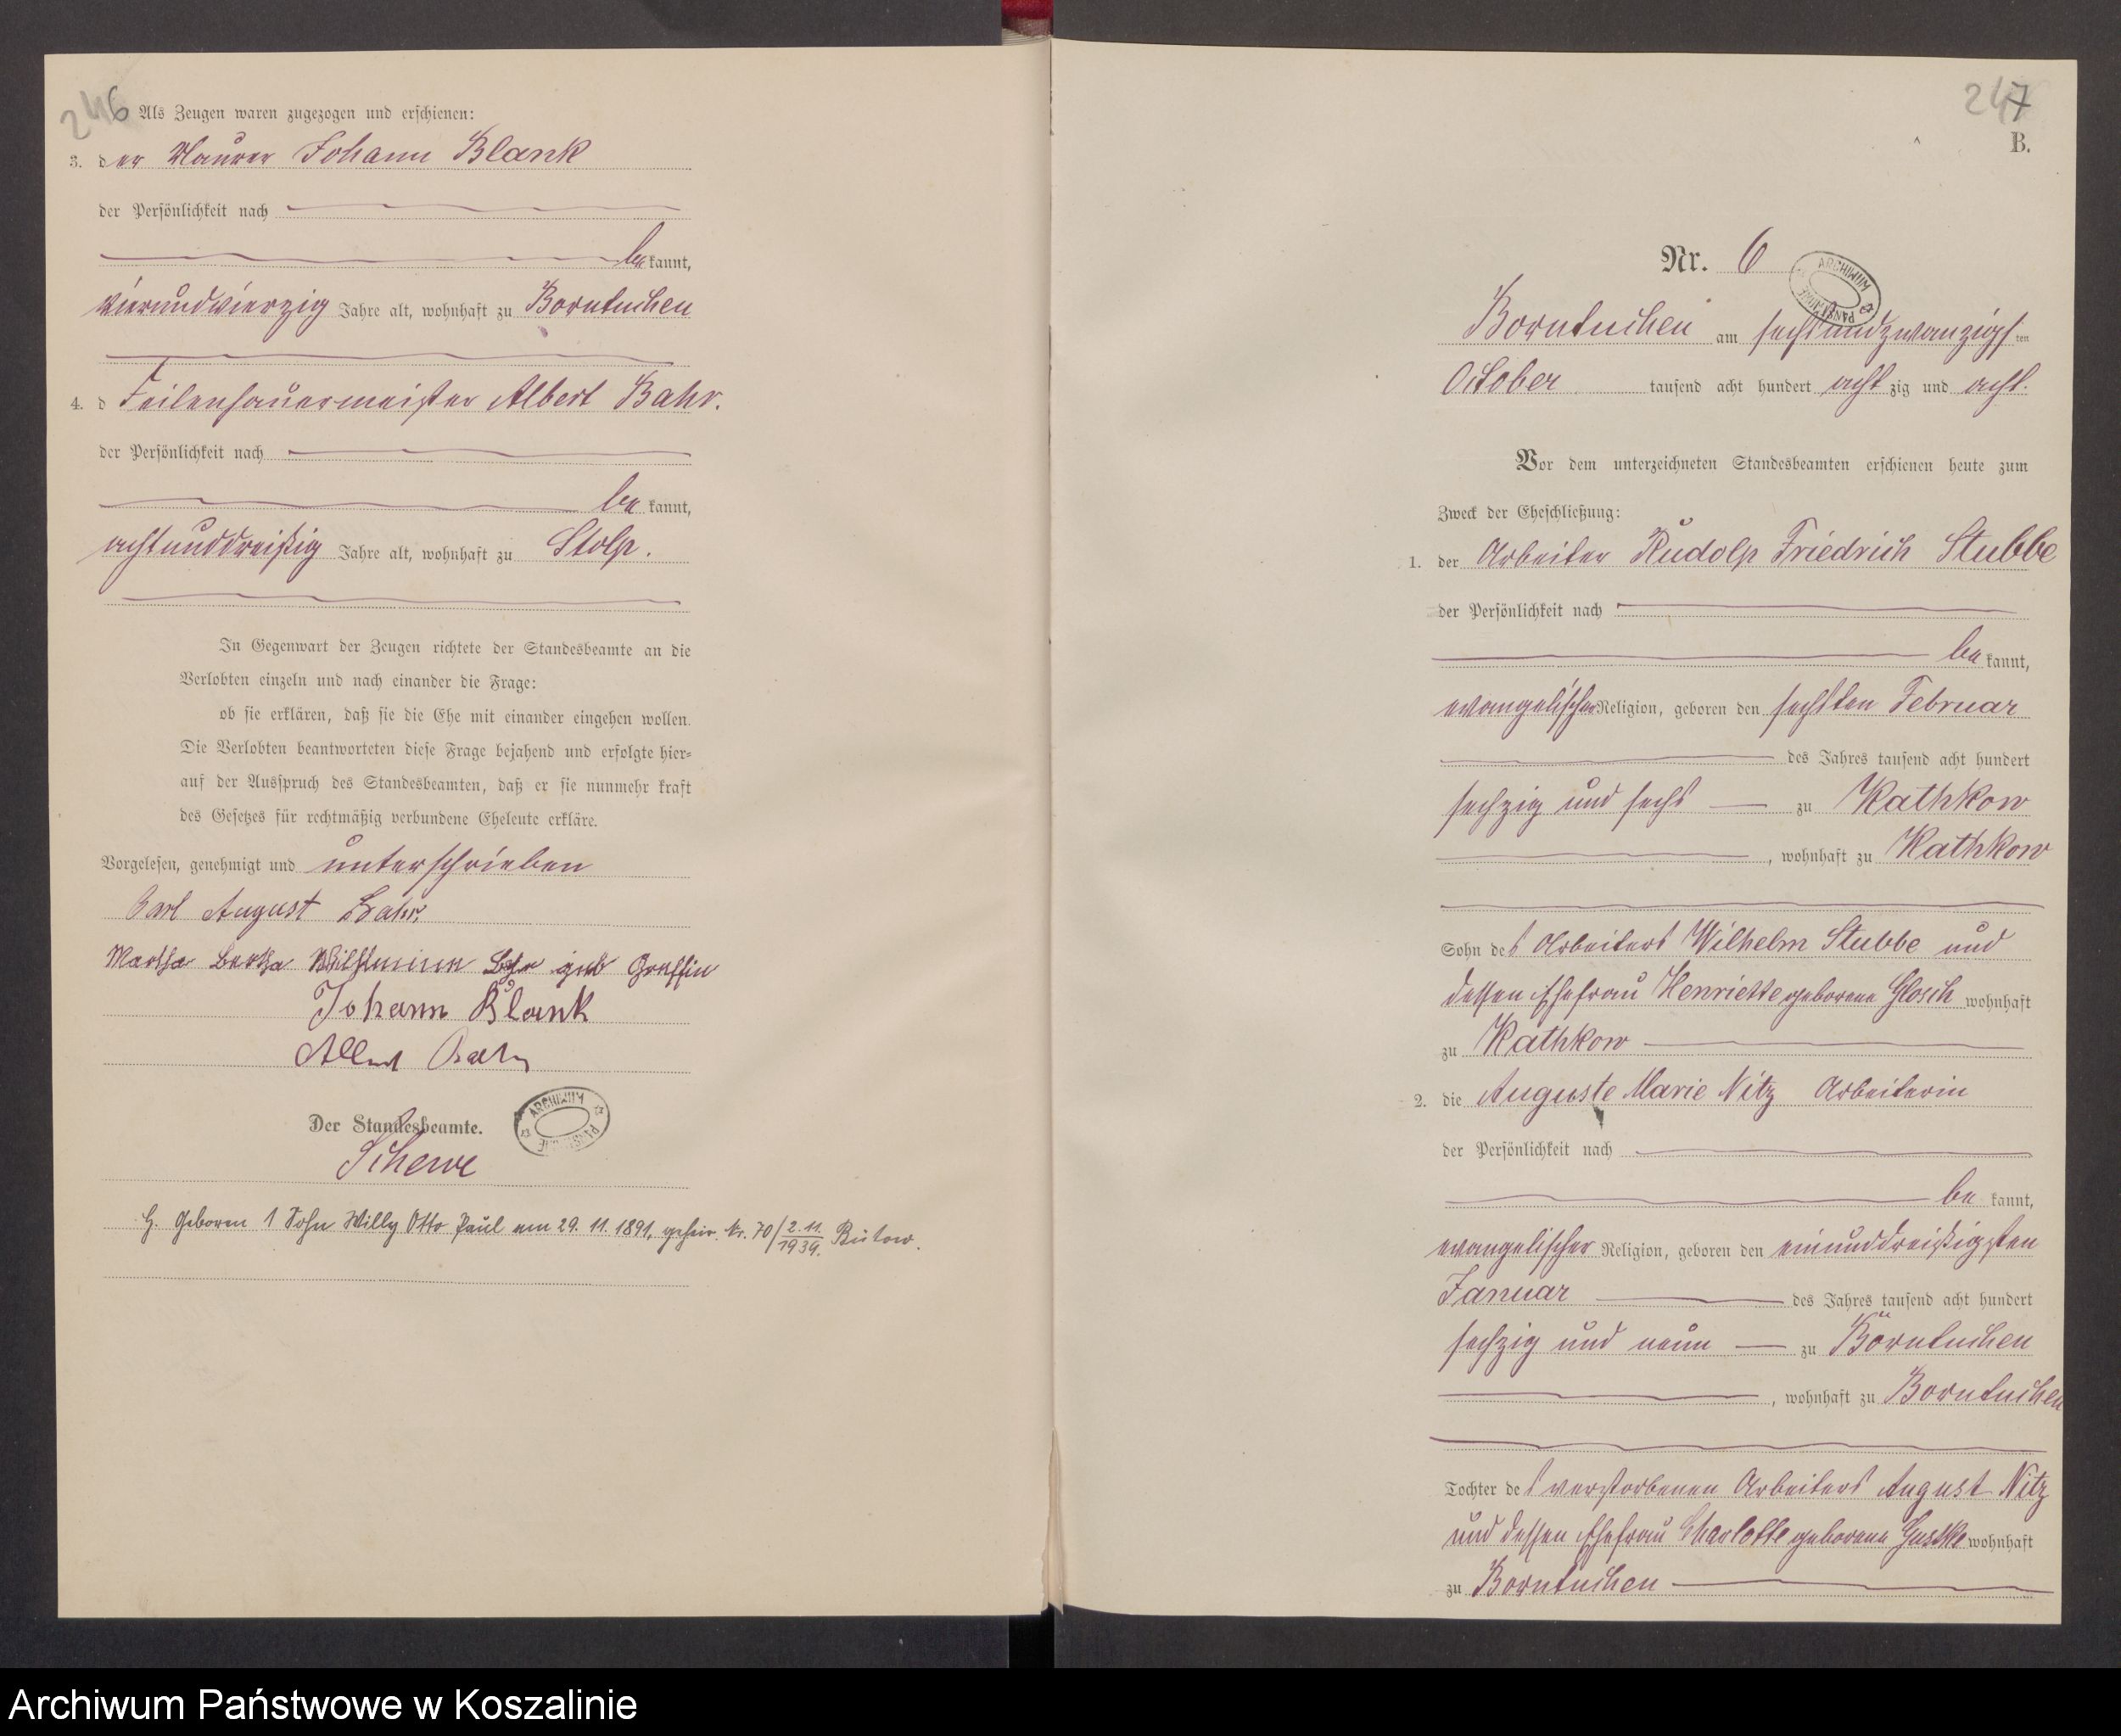 246
Als Zeugen waren zugezogen und erschienen:
3. der Maurer Johann Blank
der Persönlichkeit nach
be kannt,
vierundvierzig Jahre alt, wohnhaft zu Borntuchen
4. d Feilenhauermeister Albert Bahr.
der Persönlichkeit nach
be kannt,
achtunddreißig Jahre alt, wohnhaft zu Stolp.
In Gegenwart der Zeugen richtete der Standesbeamte an die
Verlobten einzeln und nach einander die Frage:
ob sie erklären, daß sie die Ehe mit einander eingehen wollen.
Die Verlobten beantworteten diese Frage bejahend und erfolgte hier-
auf der Ausspruch des Standesbeamten, daß er sie nunmehr kraft
des Gesetzes für rechtmäßig verbundene Eheleute erkläre.
Vorgelesen, genehmigt und unterschrieben
Carl August Bahr.
Martha Bertha Wilhelmine geb
Johann Blank
Albert Bahr
Der Standesbeamte.
Schewe
ARCHIWUM PAŃSTWOWE
G. Geboren 1 Sohn Willy Otto Paul am 29. 11. 1891, geheir. Nr. 70/2.11.1939. Bütow.
247
B.
Nr. 6
ARCHIWUM PAŃSTWOWE
Borntuchen am sechsundzwanzigsten
October tausend acht hundert achtzig und acht.
Vor dem unterzeichneten Standesbeamten erschienen heute zum
Zweck der Eheschließung:
1. der Arbeiter Rudolp Friedrich Stubbe
der Persönlichkeit nach
be kannt,
evangelischer Religion, geboren den sechsten Februar
des Jahres tausend acht hundert
sechzig und sechs zu Kathkow
, wohnhaft zu Kathkow
Sohn des Arbeiters Wilhelm Stubbe und
dessen Ehefrau Henriette geborene Glosch wohnhaft
zu Kathkow
2. die Auguste Marie Nitz Arbeiterin
der Persönlichkeit nach
be kannt,
evangelischer Religion, geboren den einunddreißigsten
Januar des Jahres tausend acht hundert
sechzig und neun zu Borntuchen
, wohnhaft zu Borntuchen
Tochter des verstorbenen Arbeiters August Nitz
und dessen Ehefrau Charlotte geborene Guske wohnhaft
zu Borntuchen
Archiwum Państwowe w Koszalinie